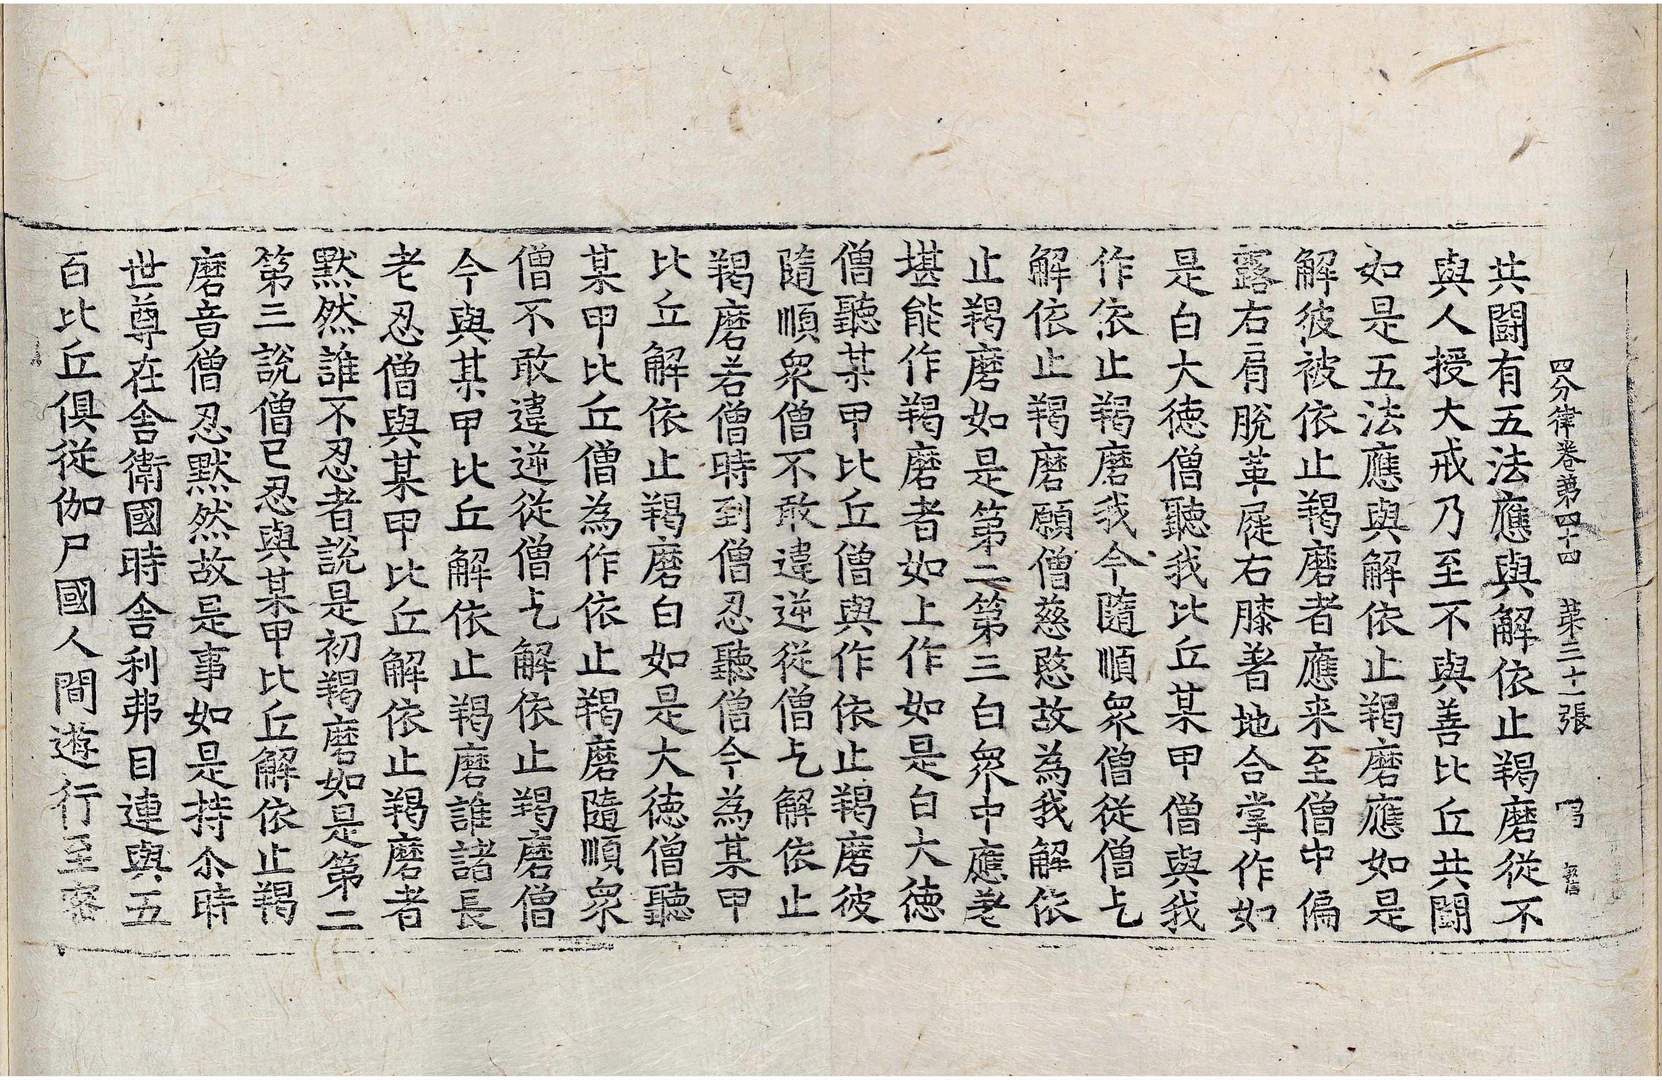 四分律卷第四十四 第三十一張
共鬪有五法應與解依止羯磨從不
與人授大戒乃至不與善比丘共鬪
如是五法應與解依止羯磨應如是
解彼被依止羯磨者應來至僧中偏
露右肩脫革屣右膝著地合掌作如
是白大德僧聽我比丘某甲僧與我
作依止羯磨我今隨順眾僧從僧乞
解依止羯磨願僧慈愍故為我解依
止羯磨如是第二第三白眾中應差
堪能作羯磨者如上作如是白大德
僧聽某甲比丘僧與作依止羯磨彼
隨順眾僧不敢違逆從僧乞解依止
羯磨若僧時到僧忍聽僧今為某甲
比丘解依止羯磨白如是大德僧聽
某甲比丘僧為作依止羯磨隨順眾
僧不敢違逆從僧乞解依止羯磨僧
今與某甲比丘解依止羯磨誰諸長
老忍僧與某甲比丘解依止羯磨者
默然誰不忍者說是初羯磨如是第二
第三說僧已忍與某甲比丘解依止羯
磨音僧忍默然故是事如是持尒時
世尊在舍衛國時舍利弗目連與五
百比丘俱從伽尸國人間遊行至密